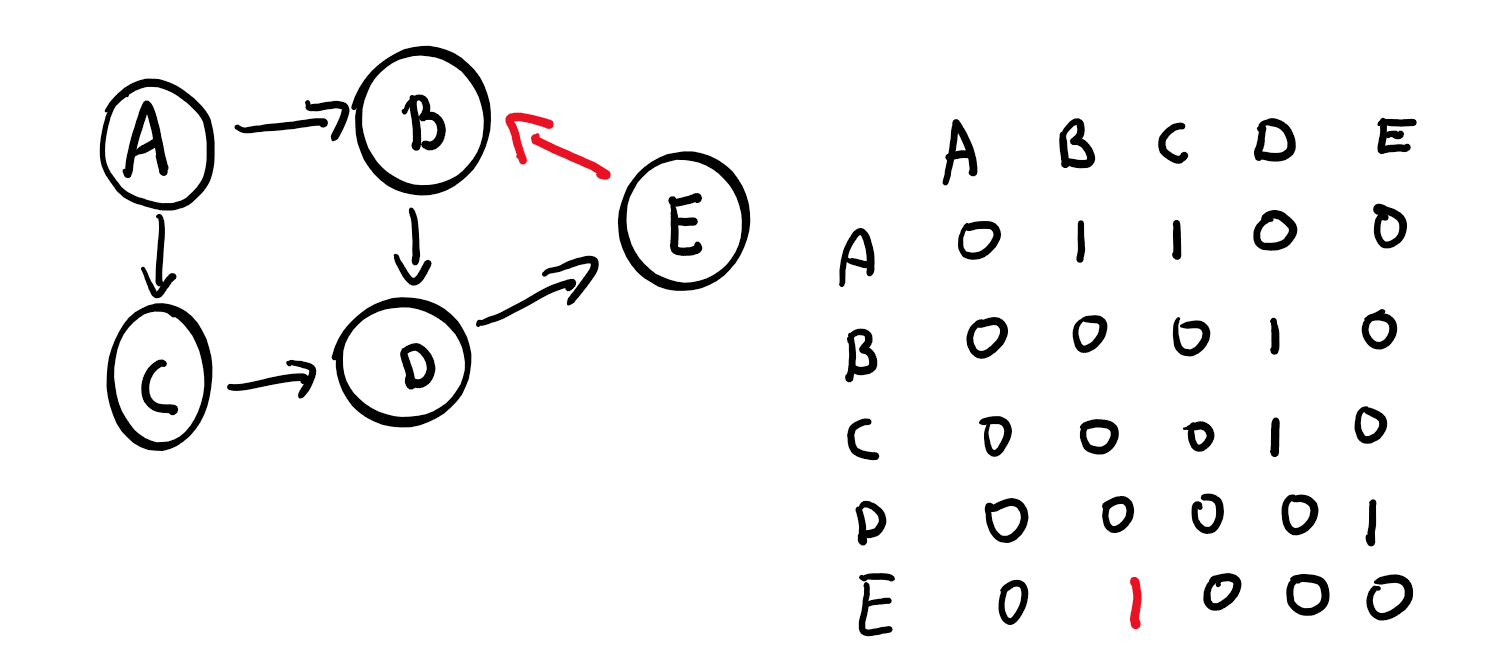 A B
E
C D
A B C D E
A 0 1 1 0 0
B 0 0 0 1 0
C 0 0 0 1 0
D 0 0 0 0 1
E 0 1 0 0 0